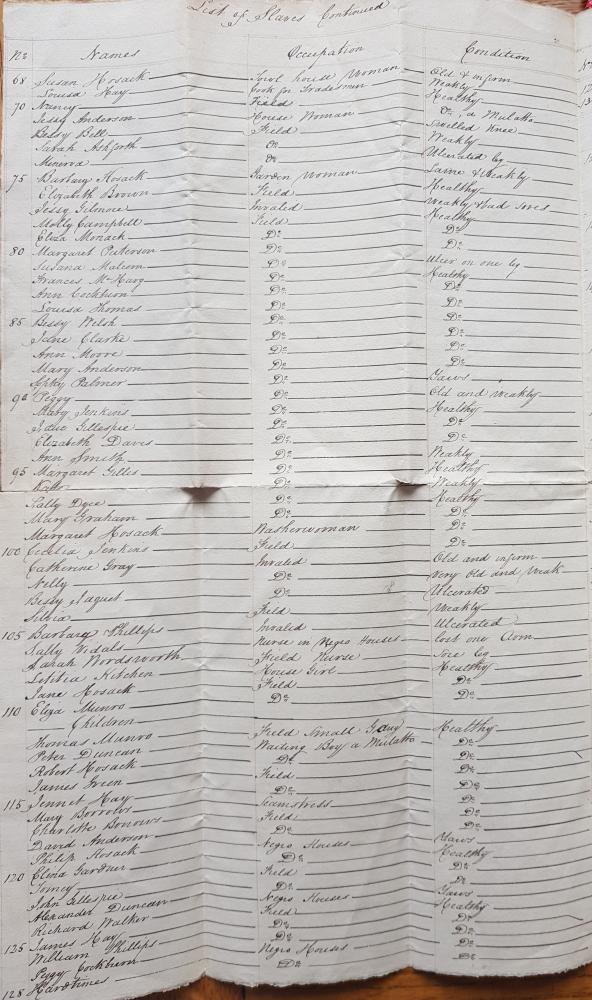 List of Slaves Continued
No Names Occupation Condition
68 Susan Hosack Fowl house Woman Old & infirm
Louisa Hay Cook for Tradesmen Weakly
70 Nancy Field Healthy
Jessy Anderson House Woman Do, a Mulatto
Betsy Bell Field Swelled Knee
Sarah Ashforth Do Weakly
Minerva Do Ulcerated leg
75 Barbary Hosack Garden Woman Lame & Weakly
Elizabeth Brown Field Healthy
Jessy Gilmore Invalid Weakly & bad sores
Molly Campbell Field Healthy
Eliza Monack Do Do
80 Margaret Peterson Do Do
Susana Malcom Do Ulcer on one leg
Frances McHarg Do Healthy
Ann Cockburn Do Do
Louisa Thomas Do Do
85 Bessy Welsh Do Do
Jane Clarke Do Do
Ann Moore Do Do
Mary Anderson Do Do
Sophy Palmer Do Yaws
90 Peggy Do Old and weakly
Mary Jenkins Do Healthy
Gillespie Do Do
Elizabeth Davis Do Do
Ann Smith Do Weakly
95 Margaret Gilles Do Healthy
Kate Do Weakly
Sally Dyce Do Healthy
Mary Graham Do Do
Margaret Hosack Washerwoman Do
100 Cecelia Jenkins Field Do
Catherine Gray Invalid Old and infirm
Nelly Do Very Old and Weak
Bessy Do Ulcerated
Silvia Field Weakly
105 Barbary Phillips Invalid Ulcerated
Sally Nurse in Negro Houses Lost one Arm
Sarah Wordsworth Field Nurse Sore Leg
Letitia Kitchen House Girl Healthy
Jane Hosack Field Do
110 Eliza Munro Do Do
Children
Thomas Munro Field Small Gang Healthy
Peter Duncan Waiting Boy a Mulatto Do
Robert Hosack Do Do
James Green Field Do
115 Jennet Hay Do Do
Mary Borrows Seamstress Do
Charlotte Borrows Field Do
David Anderson Do Do
Philip Hosack Negro Houses Yaws
120 Elvia Gardner Do Healthy
Tomey Field Do
John Gillespie Do Do
Alexander Duncan Negro Houses Yaws
Richard Walker Field Healthy
125 James Hay Do Do
William Phillips Do Do
Peggy Cockburn Negro Houses Do
128 Hardtimes Do Do